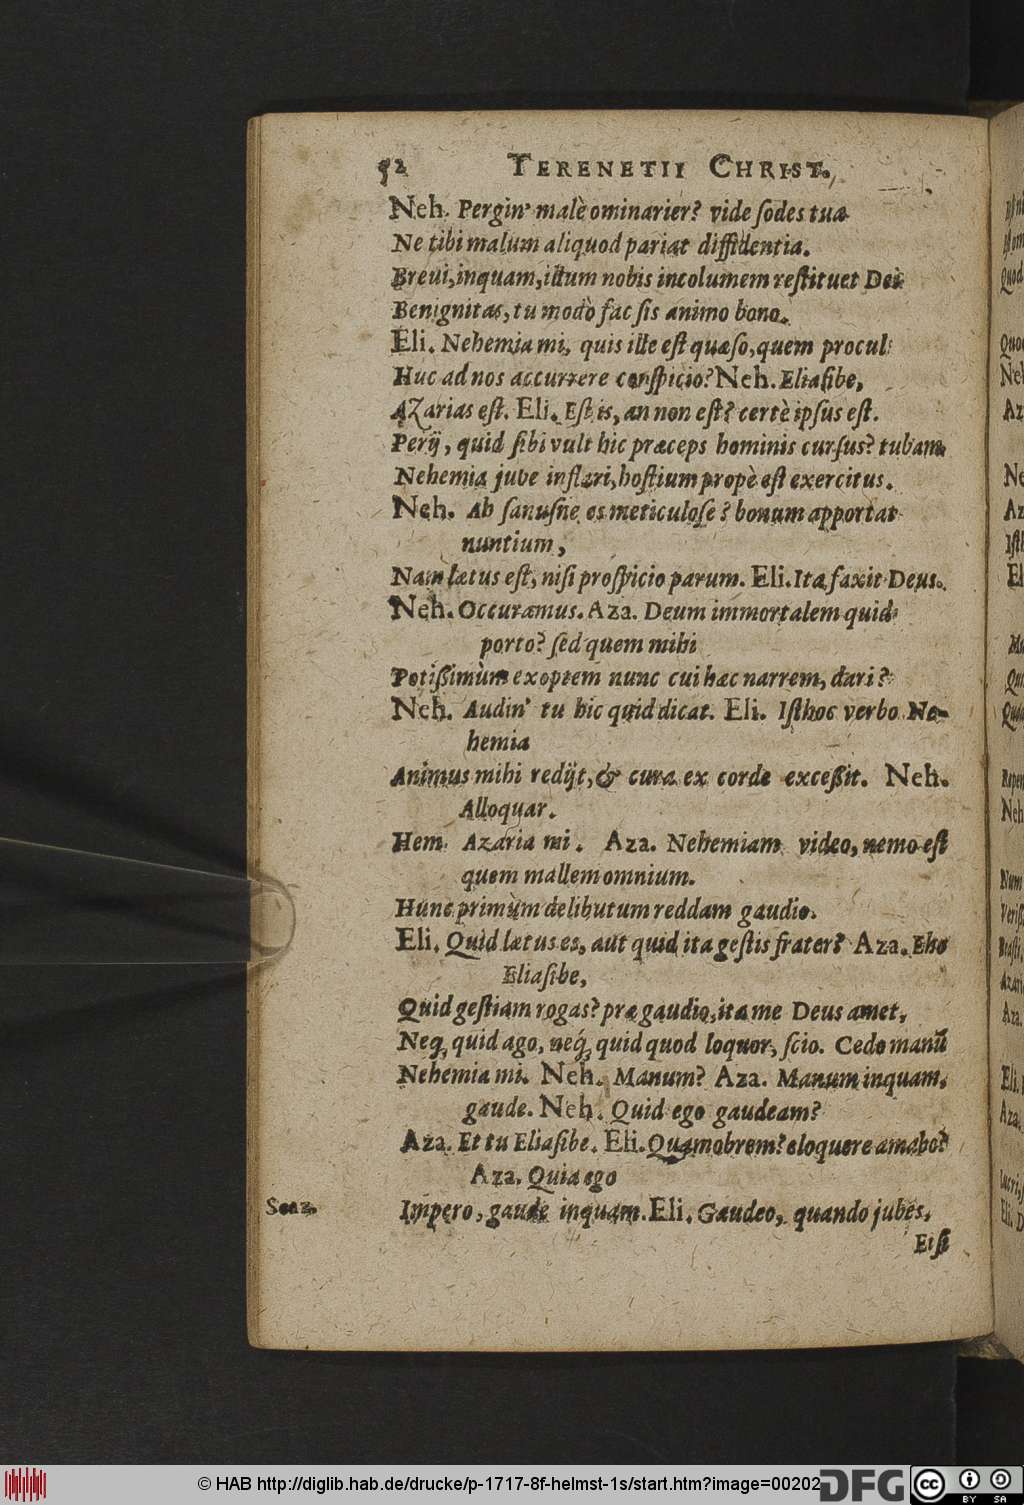 52 TERENETII CHRIST.
Neh. Pergin' malè ominarier? vide ſodes tua
Ne tibi malum aliquod pariat diffidentia.
Brevi, inquam, illum nobis incolumem reſtituet Dei
Benignitas, tu modò fac ſis animo bono.
Eli. Nehemia mi, quis ille eſt quæſo, quem procul
Huc ad nos accurrere conſpicio? Neh. Eliaſibe,
Azarias eſt. Eli. Eſt is, an non eſt? certè ipſus eſt.
Perij, quid ſibi vult hic præceps hominis curſus? tubam
Nehemia jube inflari, hoſtium propè eſt exercitus.
Neh. Ah ſanuſne es meticuloſe? bonum apportat
nuntium,
Nam lætus eſt, niſi proſpicio parum. Eli. Ita faxit Deus.
Neh. Occuramus. Aza. Deum immortalem quid
porto? ſed quem mihi
Potißimùm exoptem nunc cui hæc narrem, dari?
Neh. Audin' tu hic quid dicat. Eli. Iſthoc verbo Ne-
hemia
Animus mihi redijt, & cura ex corde exceßit. Neh.
Alloquar.
Hem Azaria mi. Aza. Nehemiam video, nemo eſt
quem mallem omnium.
Hunc primùm delibutum reddam gaudio.
Eli. Quid lætus es, aut quid ita geſtis frater? Aza. Eho
Eliaſibe,
Quid geſtiam rogas? præ gaudio, ita me Deus amet,
Neq; quid ago, neq́; quid quod loquor, ſcio. Cedo manū
Nehemia mi. Neh. Manum? Aza. Manum inquam,
gaude. Neh. Quid ego gaudeam?
Aza. Et tu Eliaſibe. Eli. Quamobrem? eloquere amabo?
Aza. Quia ego
Senaz. Impero, gaude inquam. Eli. Gaudeo, quando jubes,
Etſi
© HAB http://diglib.hab.de/drucke/p-1717-8f-helmst-1s/start.htm?image=00202
DFG
cc BY SA